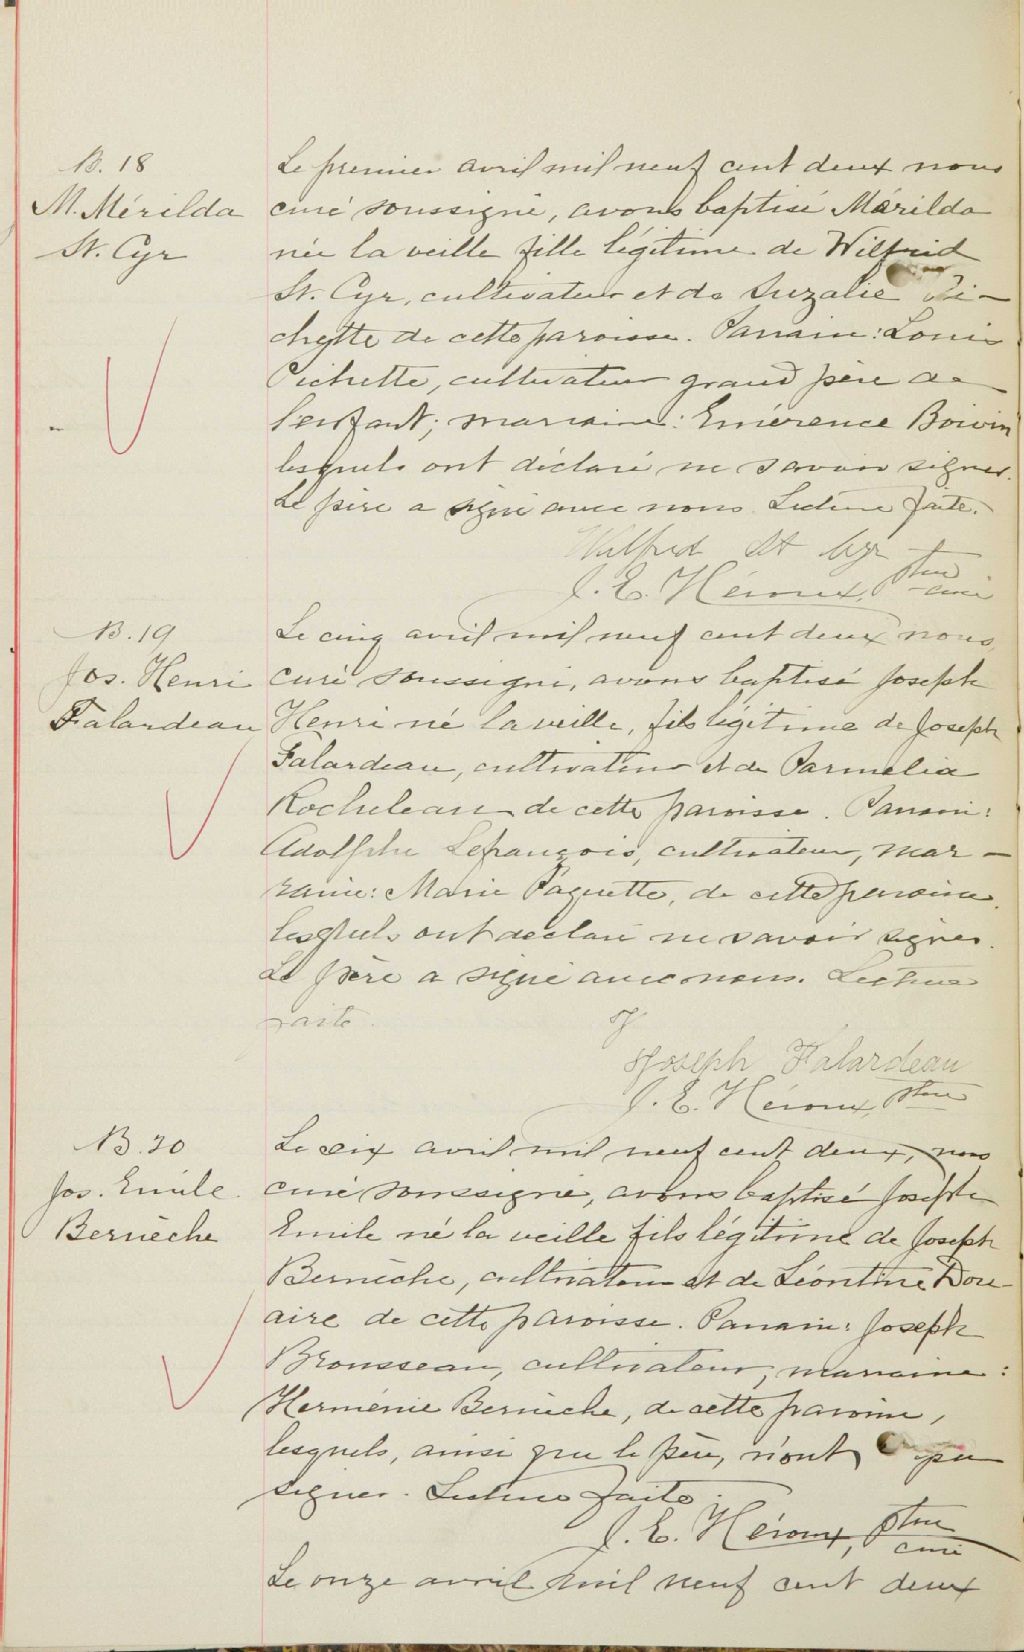 B. 18
M. Mérilda
St. Cyr
Le premier avril mil neuf cent deux nous
curé soussigné, avons baptisé Mérilda
née la veille fille légitime de Wilfrid
St. Cyr, cultivateur et de Suzalie Pi-
chette de cette paroisse. Parrain: Louis
Pichette, cultivateur grand père de
l'enfant; marraine: Emérence Boivin
lesquels ont déclaré ne savoir signer.
Le père a signé avec nous. Lecture faite.
Wilfred St Cyr
J. E. Héroux, ptre
curé
B. 19
Jos. Henri
Falardeau
Le cinq avril mil neuf cent deux nous,
curé soussigné, avons baptisé Joseph
Henri né la veille, fils légitime de Joseph
Falardeau, cultivateur et de Parmélia
Rocheleau de cette paroisse. Parrain:
Adolphe Lefrançois, cultivateur, mar-
raine: Marie Paquette, de cette paroisse,
lesquels ont déclaré ne savoir signer.
Le père a signé avec nous. Lecture
faite.
J
Joseph Falardeau
J. E. Héroux, ptre
B. 20
Jos. Emile
Bernèche
Le six avril mil neuf cent deux, nous
curé soussigné, avons baptisé Joseph
Emile né la veille fils légitime de Joseph
Bernèche, cultivateur et de Léontine Dou-
aire de cette paroisse. Parrain: Joseph
Brousseau, cultivateur, marraine:
Herménie Bernèche, de cette paroisse,
lesquels, ainsi que le père, n'ont pu
signer. Lecture faite.
J. E. Héroux, ptre
curé
Le onze avril mil neuf cent deux